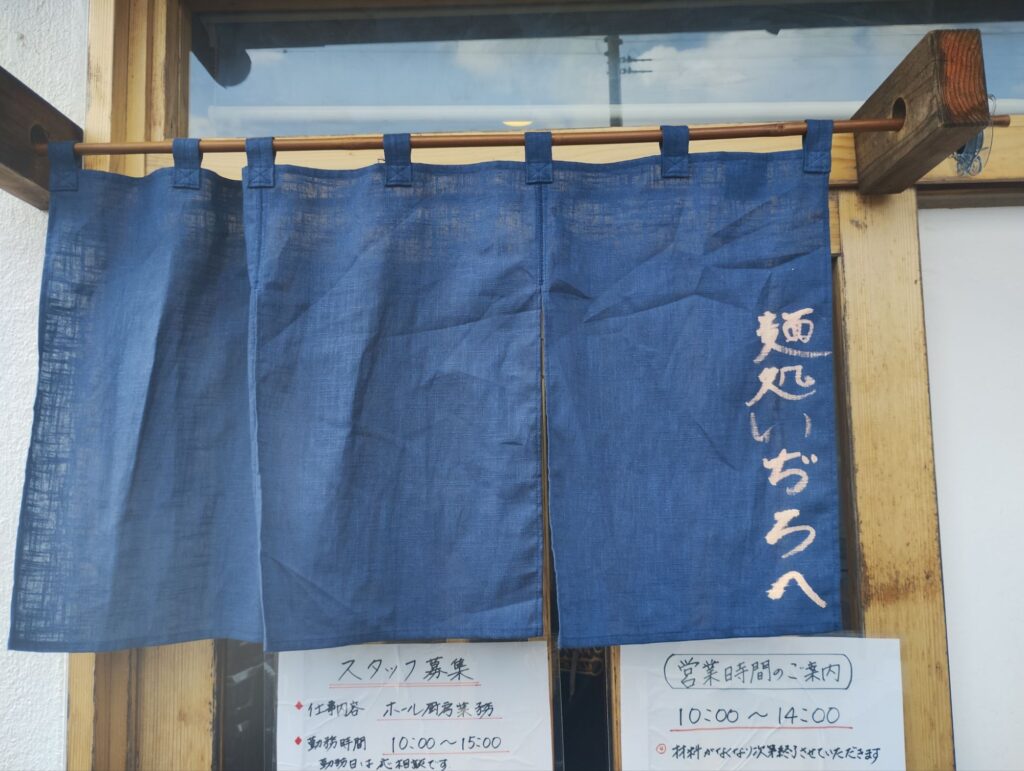 麺処いぢろへ
スタッフ募集
◆ 仕事内容 ホール厨房業務
◆ 勤務時間 10:00～15:00
勤務日は応相談です
営業時間のご案内
10:00～14:00
材料がなくなり次第終了させていただきます